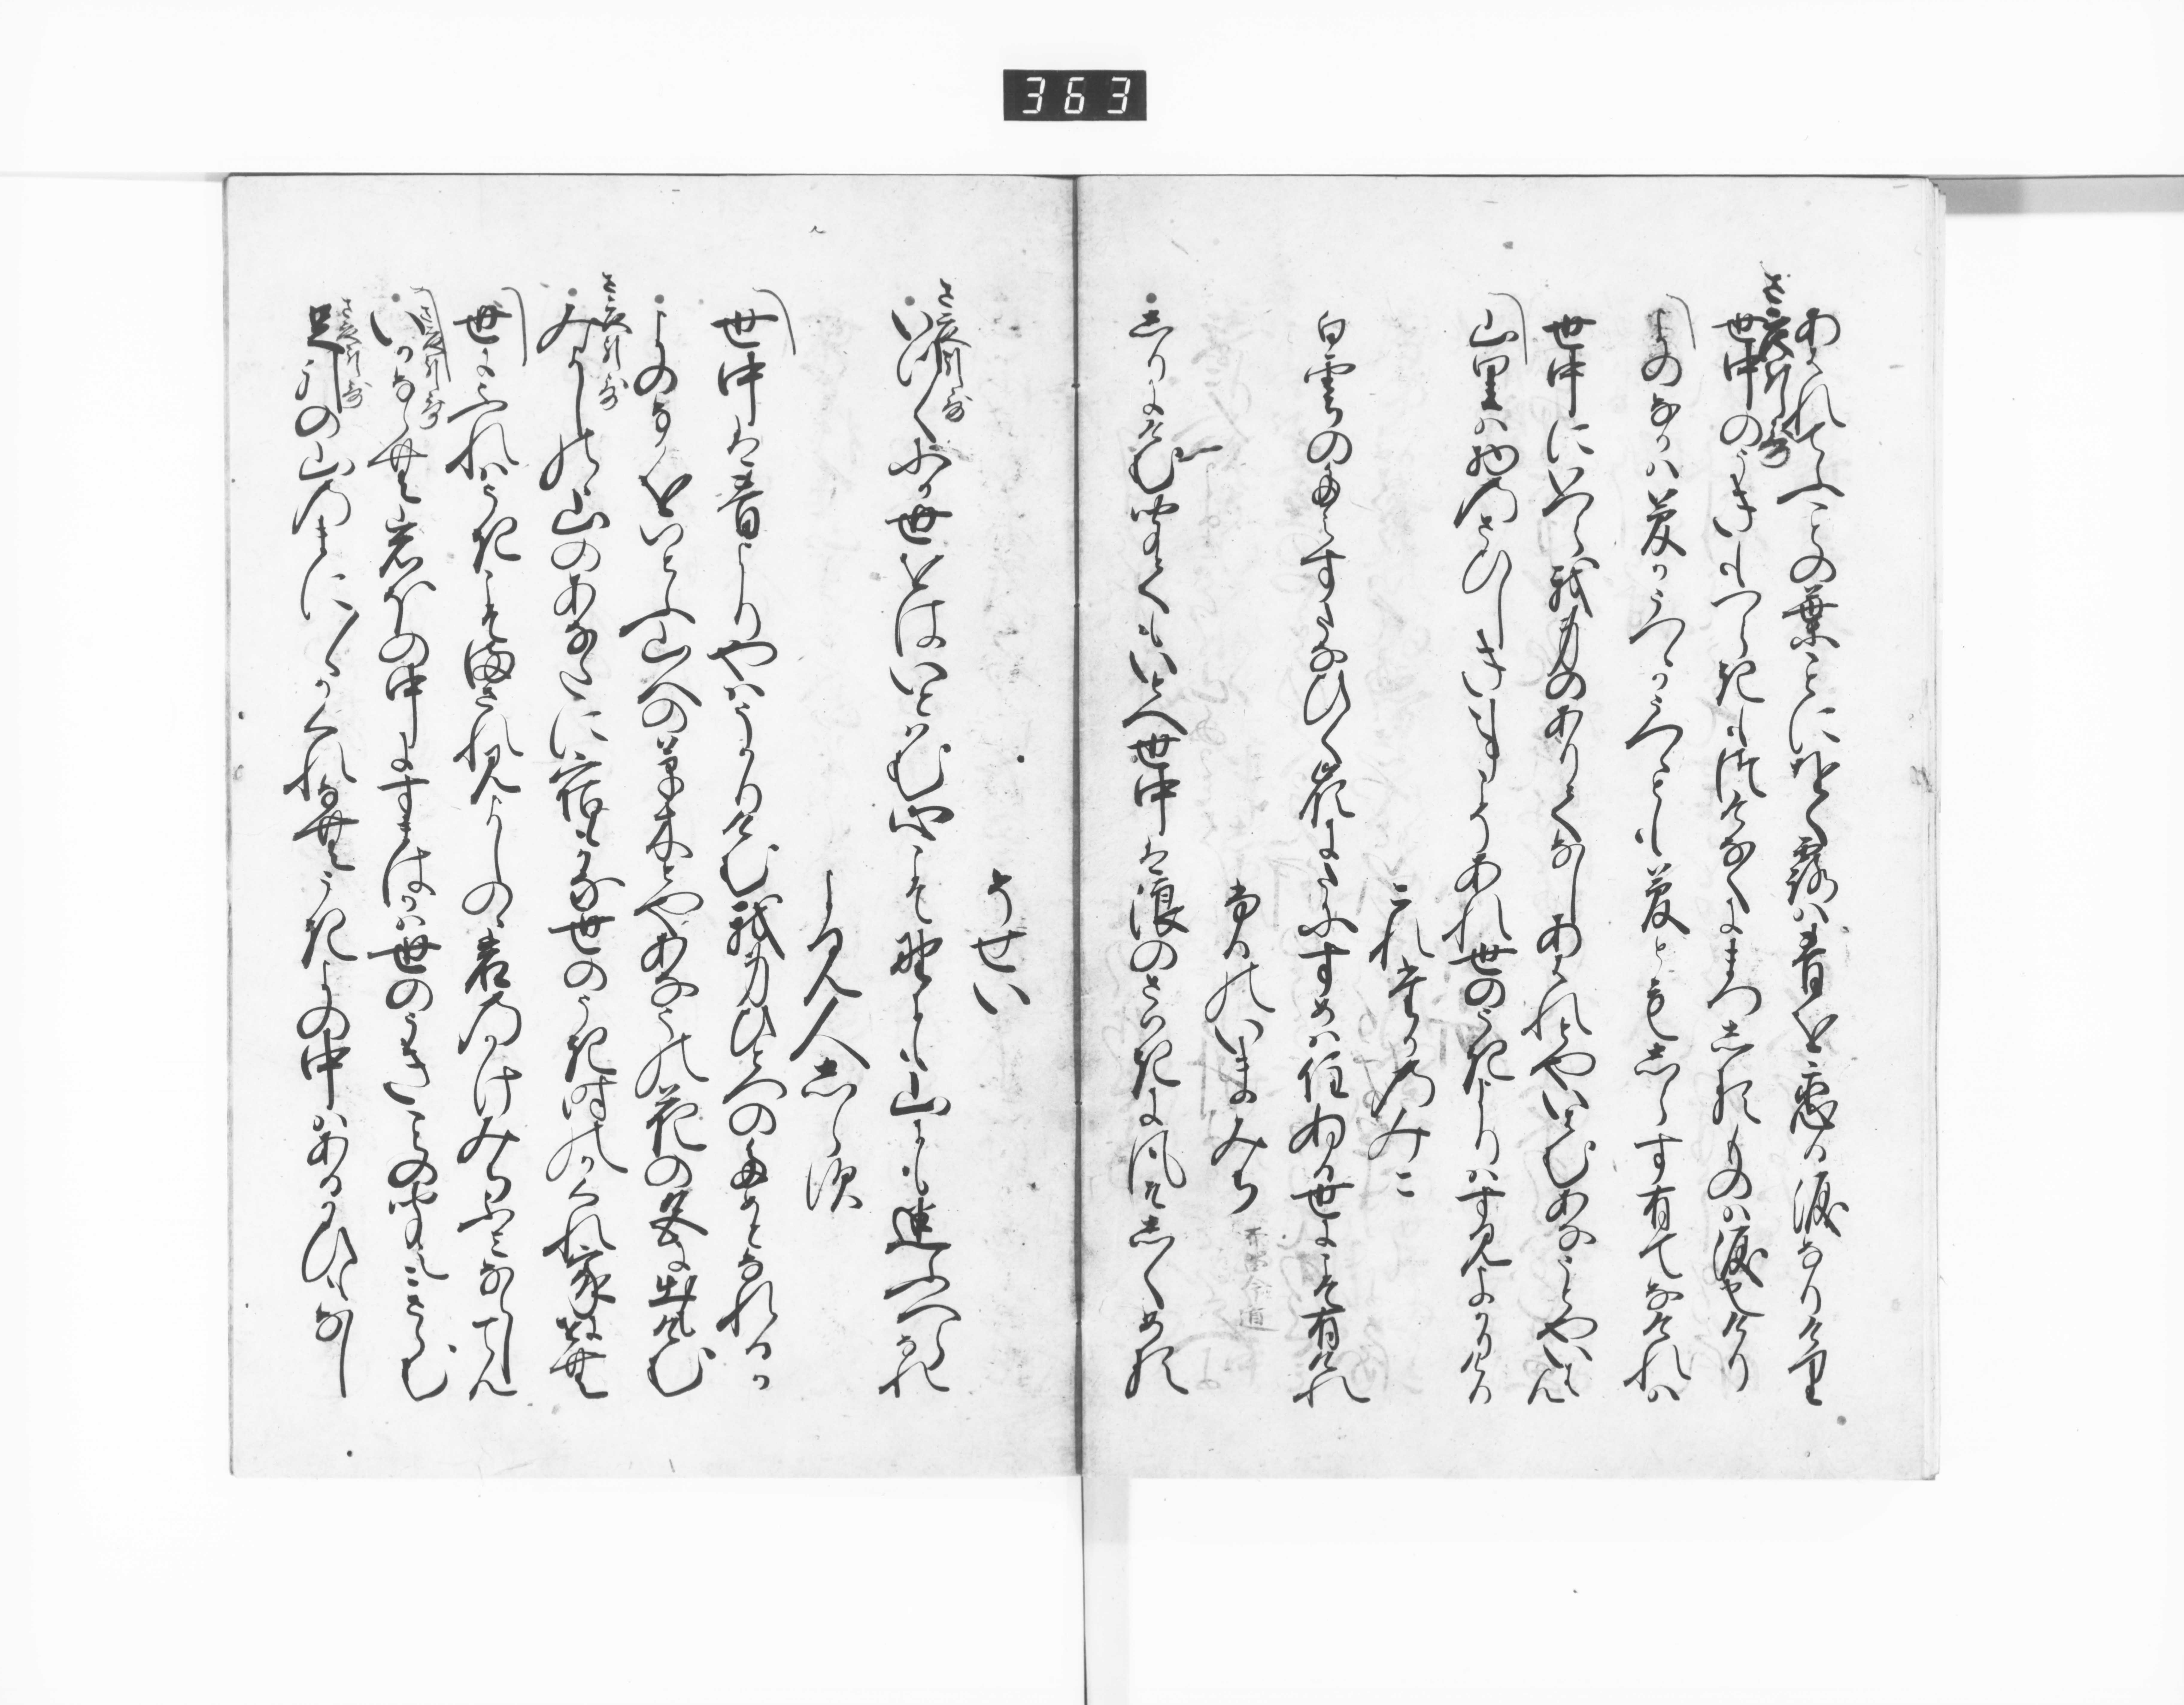 363
あはれてふことの葉ことにをく露は昔を恋る涙なりけり
世中のうきもつらきもつけなくにまつしる物は涙也けり
よのなかは夢かうつつかうつつとも夢ともしらす有てなけれは
世中にいつら我身のありてなしあはれとやいはむあなうとやいはん
山里は物のさひしき事こそあれ世のうきよりはすみよかりけり
これたかのみこ
白雲のたえすたなひく岑にたにすめは住ぬる世にこそ有けれ
ふるのいまみち
布留今道
しりにけむききてもいとへ世中は浪のさはきに風そしくめる
そせい
いつくにか世をはいとはむ心こそ野にも山にも迷ふへらなれ
よみ人しらす
世中は昔よりやはうかりけむ我身ひとつのためになれるか
よのなかをいとふ山への草木とやあなうの花の色に出にけむ
みよしのの山のあなたに宿もかな世のうき時のかくれ家にせむ
世にふれはうさこそまされみよしのの岩のかけみちふみならしてん
いかならむ岩ほの中にすまはかは世のうきことの聞えこさらむ
足引の山のまにまにかくれなむうき世の中はあるかひもなし